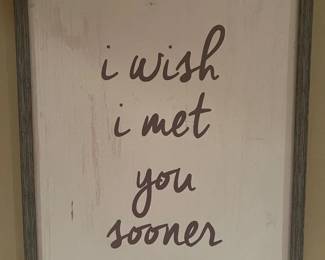 i wish
i met
you
sooner